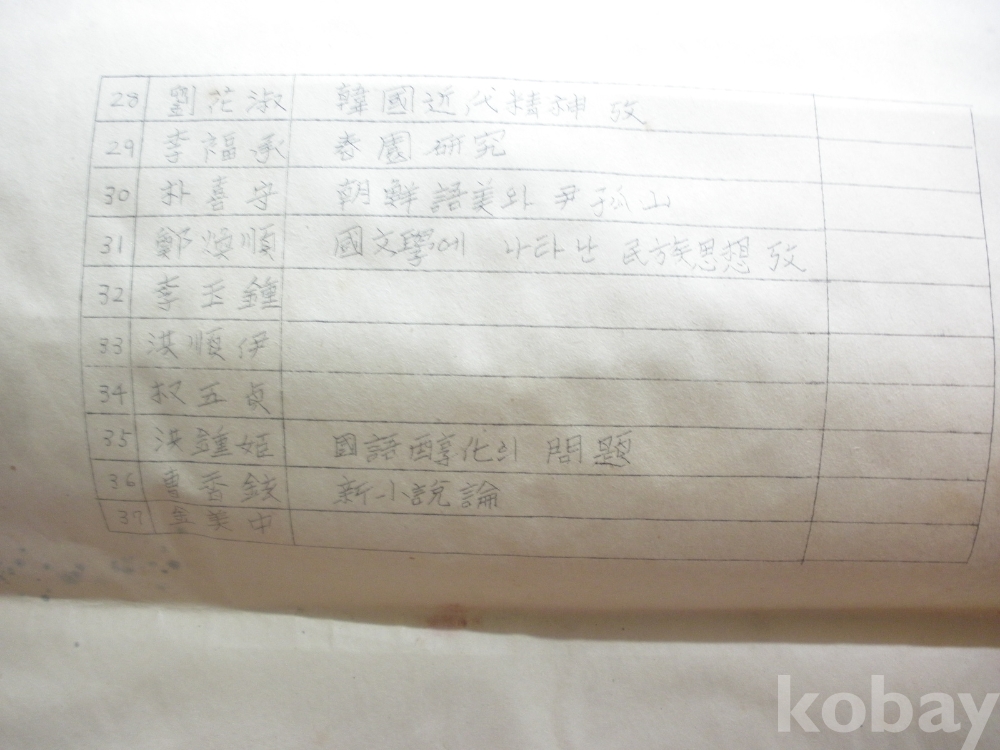 28 劉花淑 韓國近代精神 攷
29 李福承 春園 研究
30 朴喜守 朝鮮語美와 尹孤山
31 鄭煥順 國文學에 나타난 民族思想 攷
32 李玉鍾
33 洪順伊
34 权五貞
35 洪鍾姬 國語醇化의 問題
36 曺香錢 新小說論
37 金美中
kobay